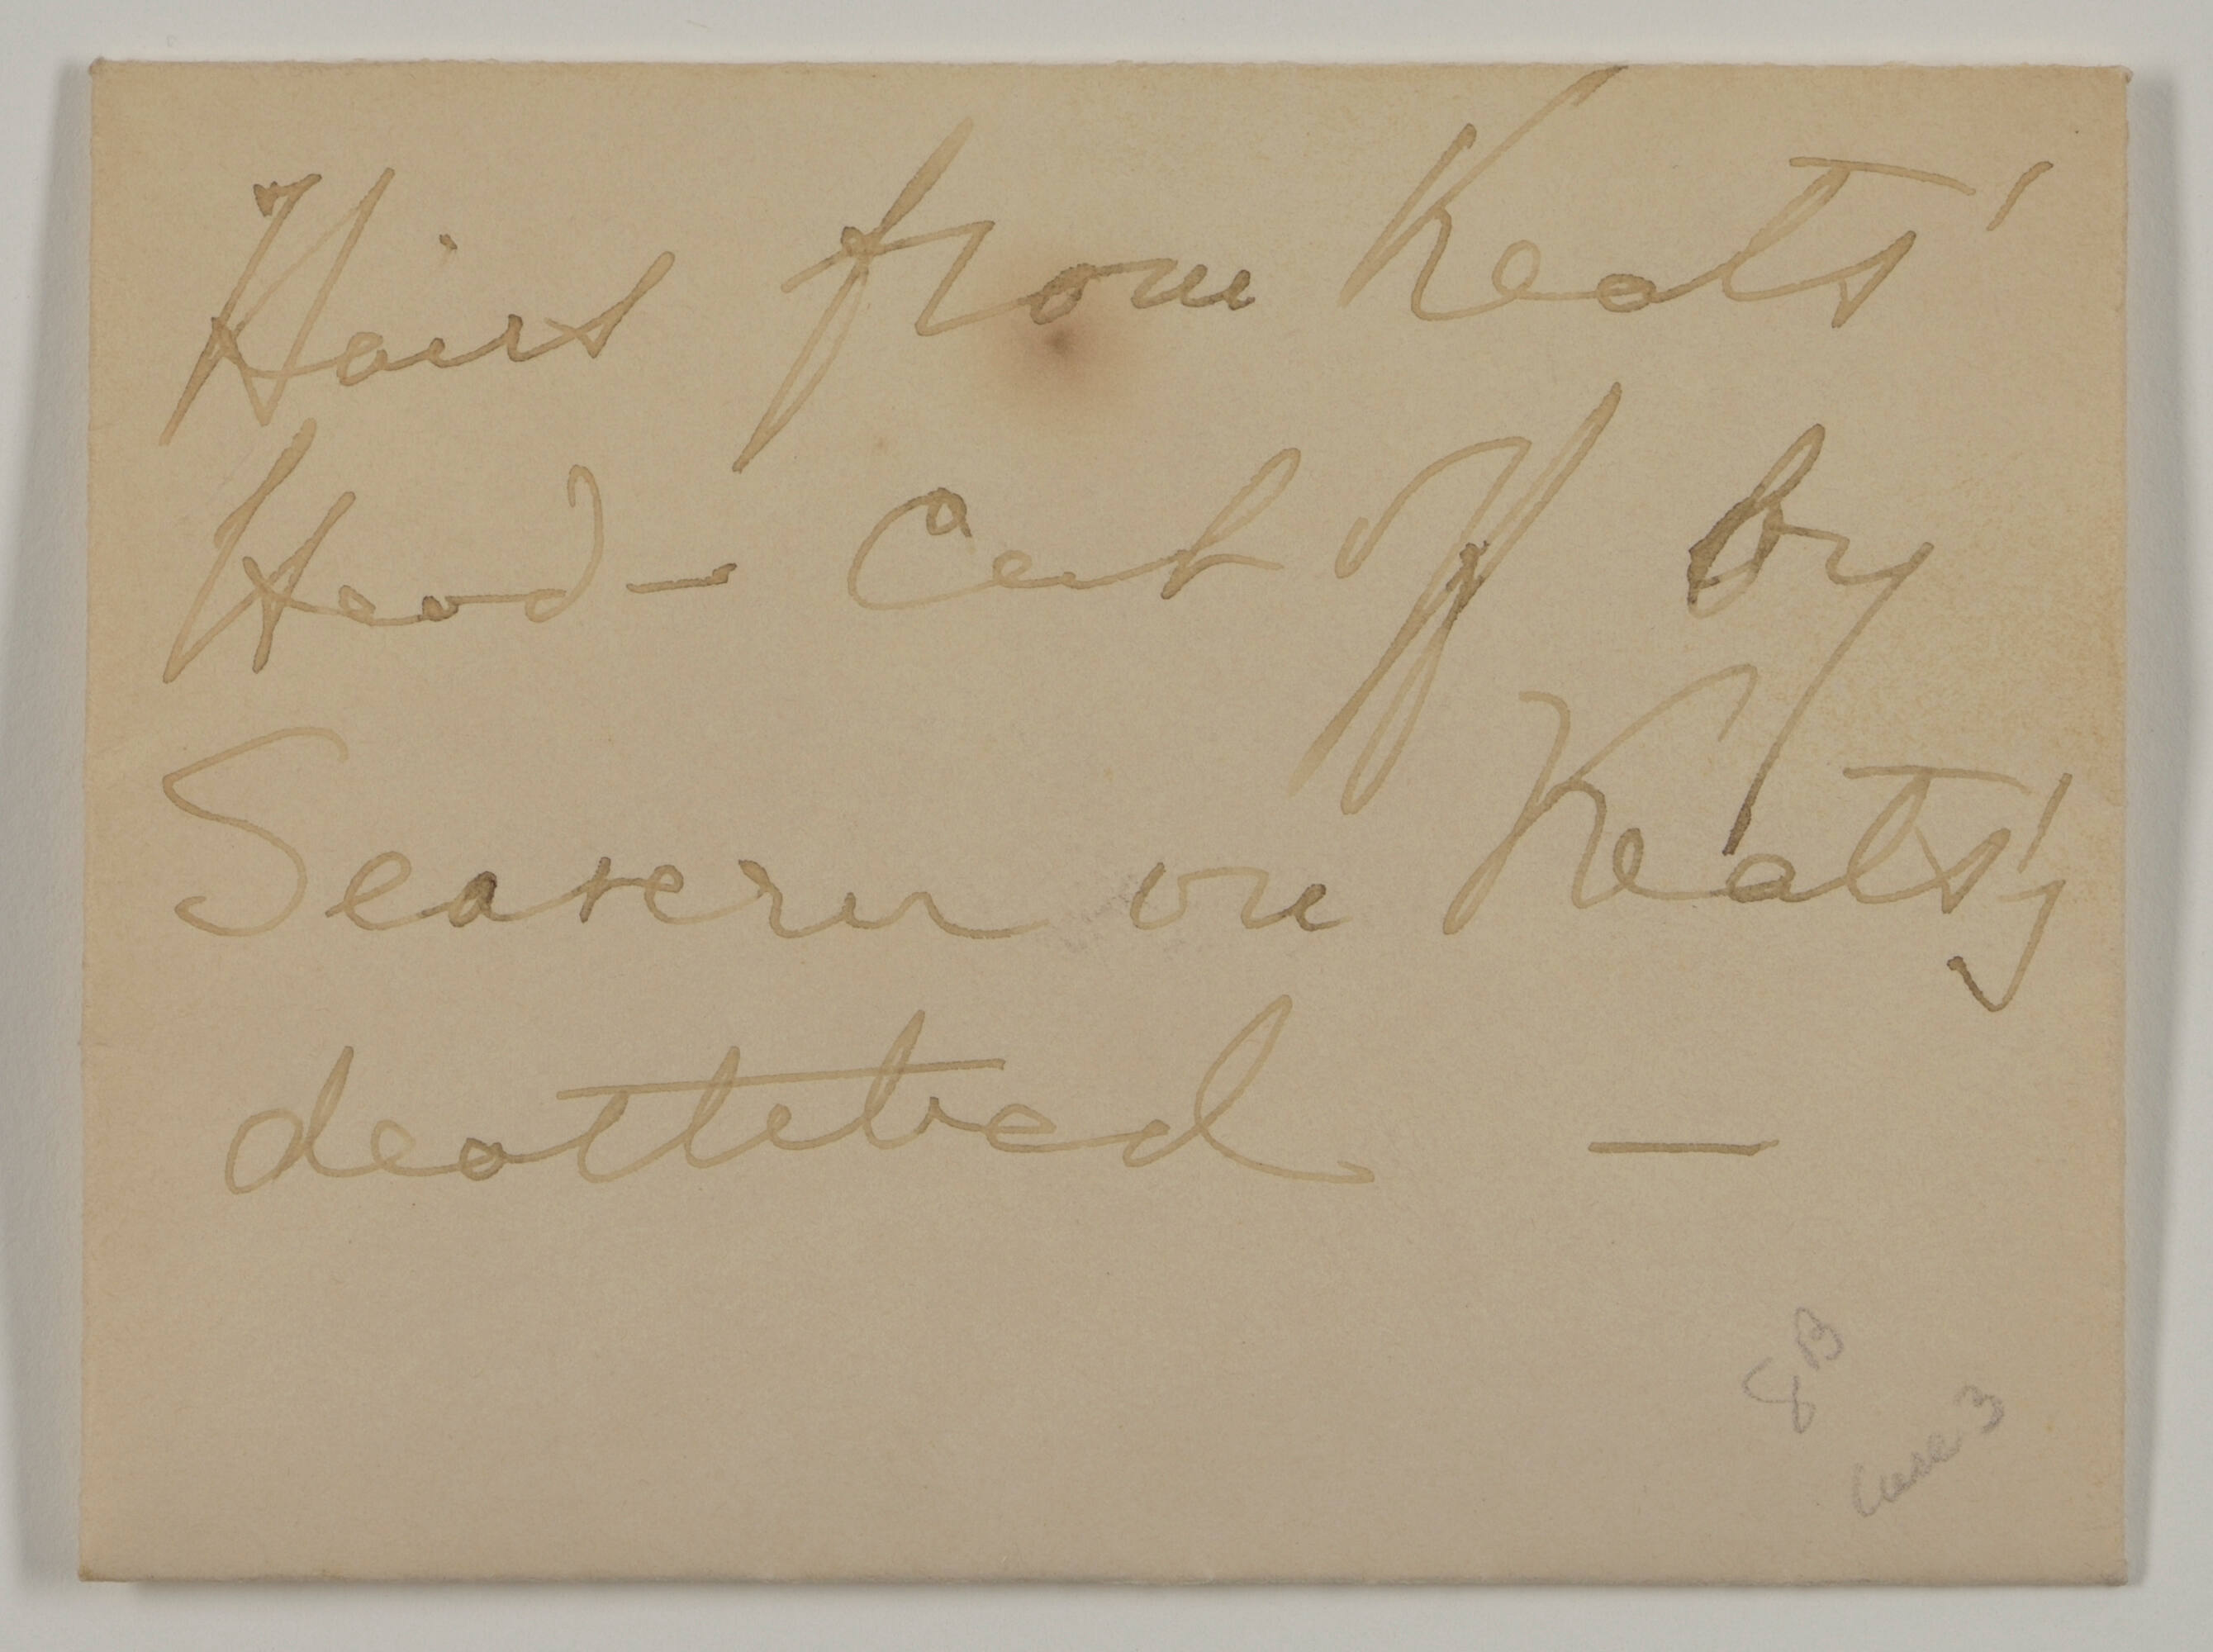 Hairs from Keats'
Head - Cut off by
Seavern on Keats'
deathbed —
8B
Case 3